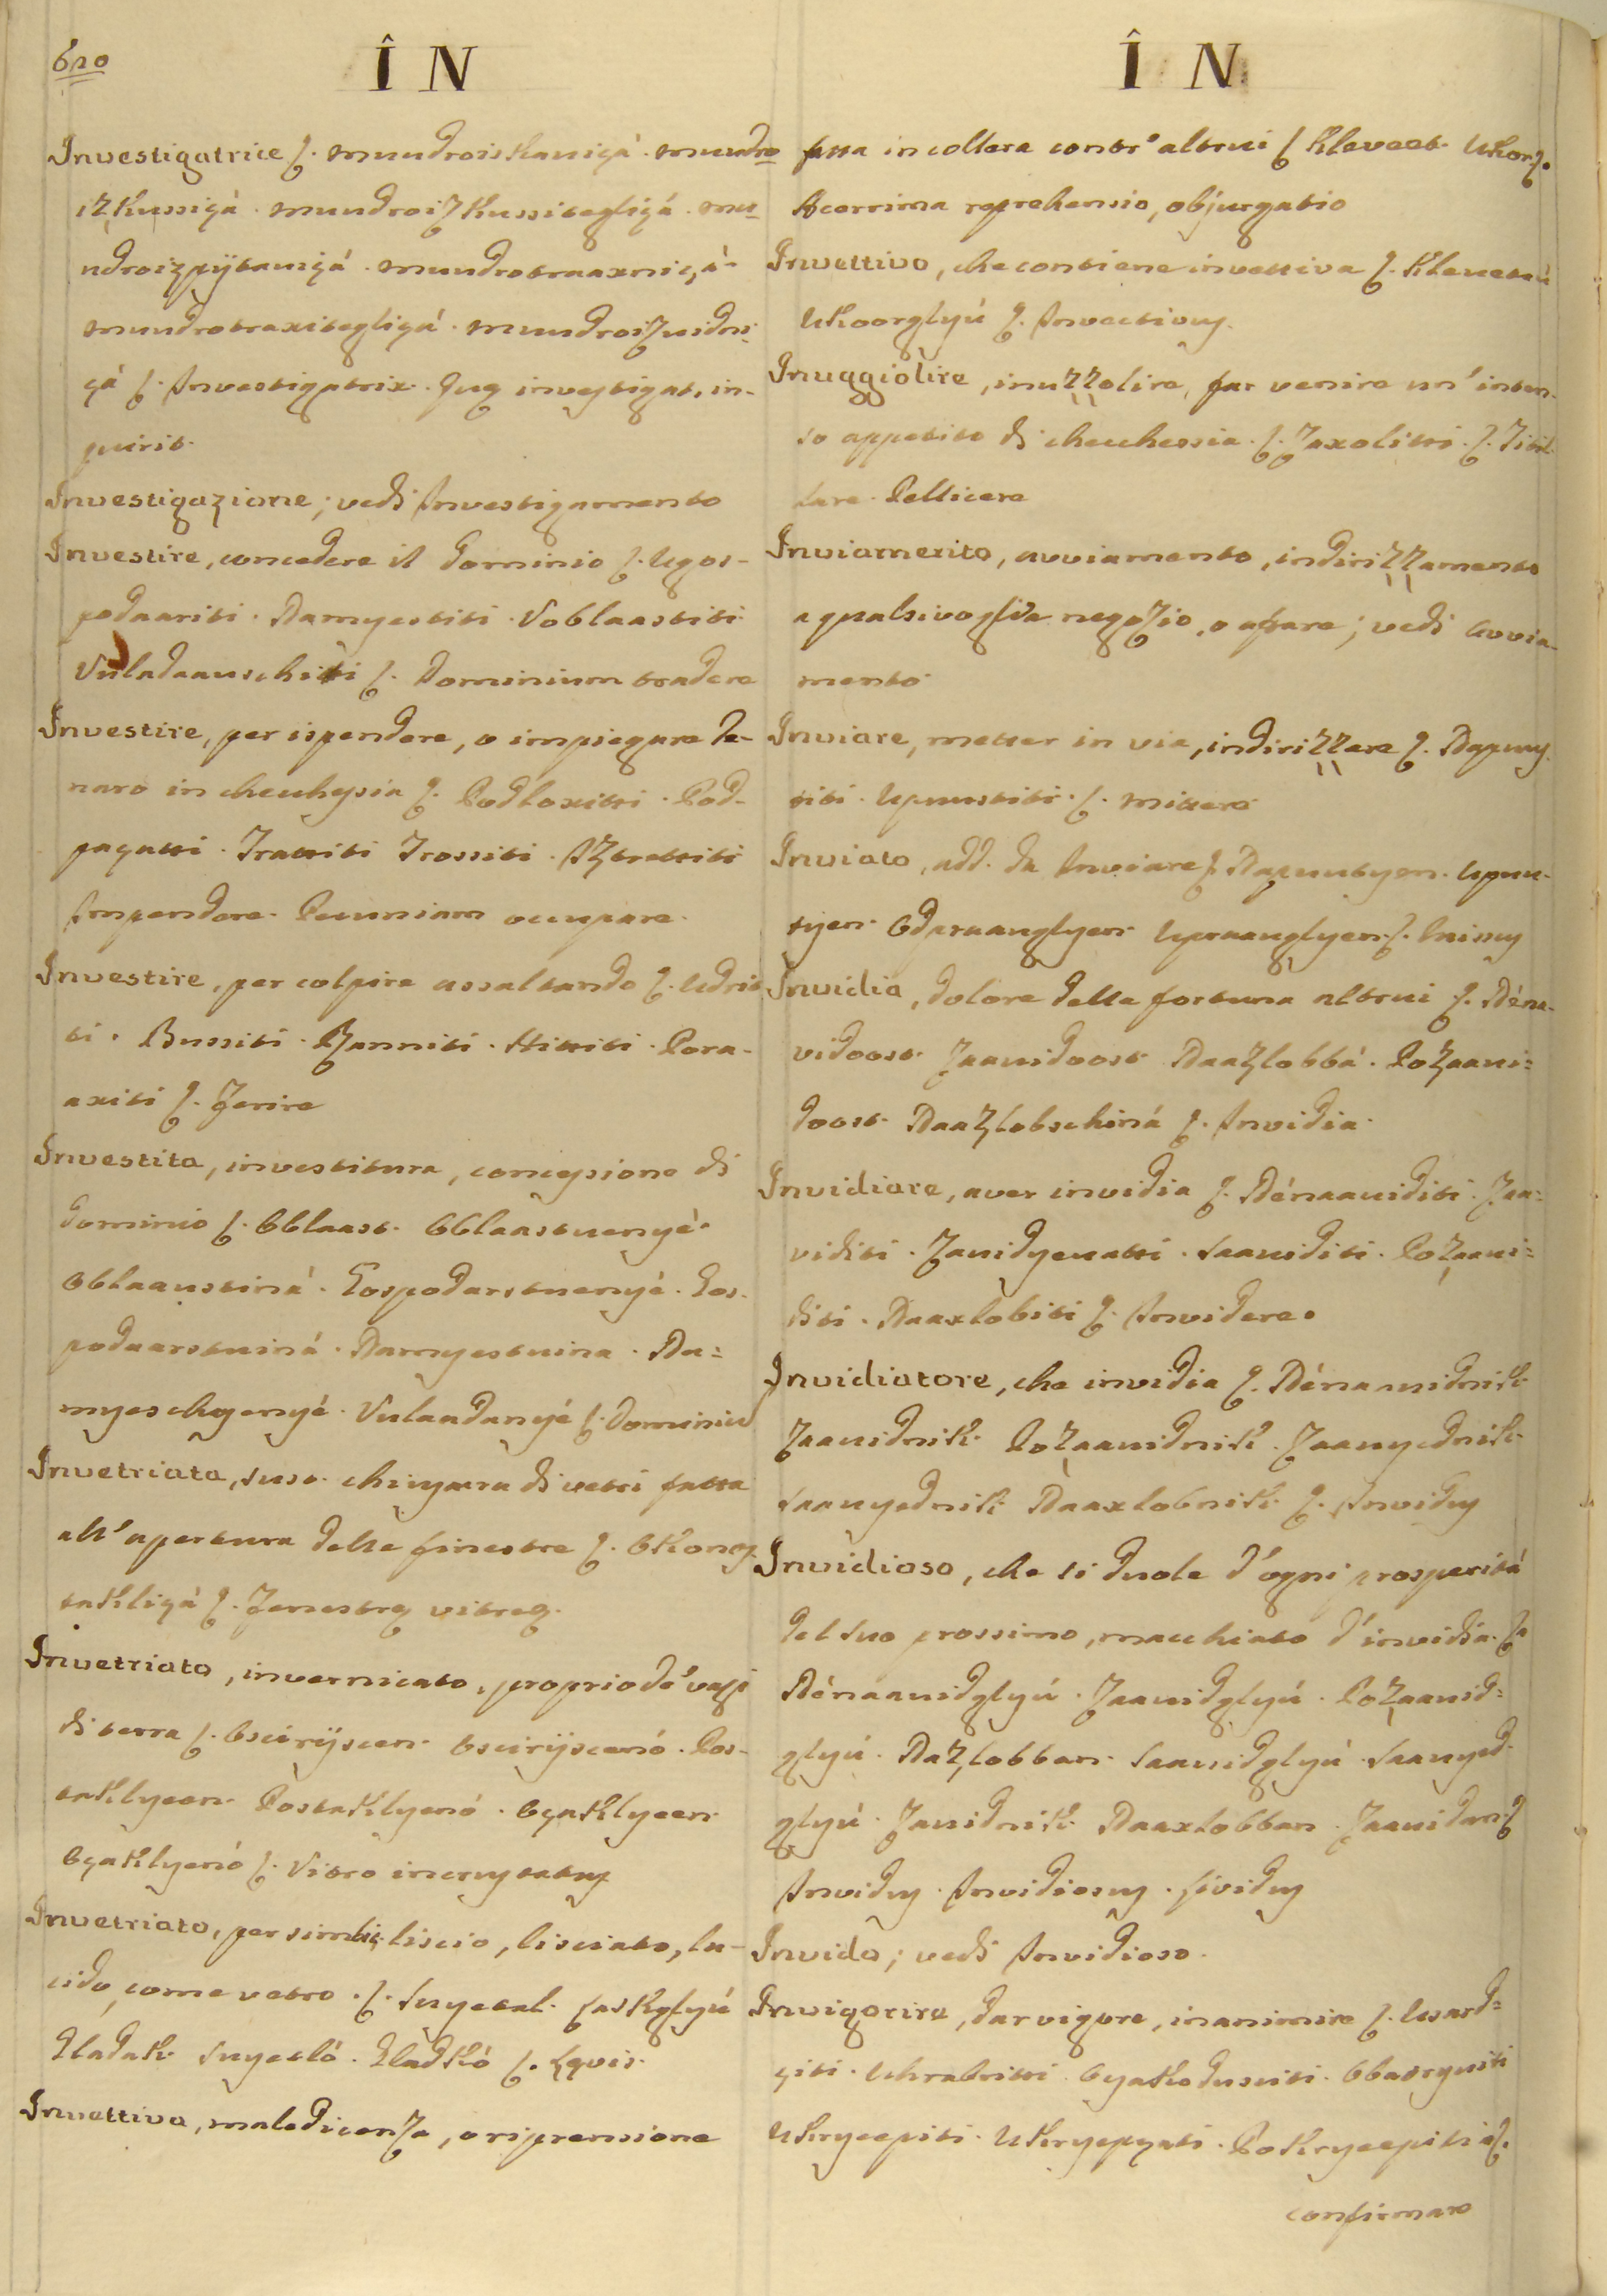 620
ÎN
Investigatrice ʃ. mundroiskaniçá. mundro
izkussiçá. mundroizkussitegliçá. mu
ndroizpÿtaniçá. mundrotraaxniçá.
mundrotraxitegliçá. mundroizuidni
çá ʃ. Investigatrix. Quę investigat, in-
quirit.
Investigazione; vedi Investigamento
Investire, concedere il dominio ʃ. Ugos-
podaariti. Damyestiti. Voblaastiti
Vuladaauschitti ʃ. Dominium tradere
Investire, per ispendere, o impiegare de-
naro in checchesia ʃ. Podloxitti. Pod-
pagatti. Trattiti Trossiti. Iztrattiti
Impendere. Pecuniam occupare.
Investire, per colpire assaltando ʃ. Udrit
ti. Bussiti. Rzanniti. Hittiti. Pora-
xiti ʃ. Ferire
Investita, investitura, concessione di
dominio ʃ. Oblaast. Oblaastuenyé.
Oblaaustiná. Gospodarstuenyé. Gos.
podaarstuiná. Damyestuina. Da=
myeschyenyé. Vulaadanyé ʃ. Dominiu
Invetriata, sust. chiusura di vetri fatta
all'apertura delle finestre ʃ. Okono
stakliçá ʃ. Fenestrę vitreę.
Invetriato, invernicato, proprio de' vasi
di terra ʃ. Osciriÿscen. Osciriÿscenó. Pos-
taklyeen. Postaklyenó. Oçaklyeen.
Oçaklyenó ʃ. Vitro incrustatus
Invetriato, per simil: liscio, lisciato, lu-
cido, come vetro. ʃ. Suyetal. Laskglyú
Gladak. Suyetló. Gladkó ʃ. Lęvis.
Invettiva, maledicenza, o riprensione
ÎN
fatta in collera contr' altrui ʃ. Kleveet. Ukor ʃ.
Acerrima reprehensio, objurgatio
Invettivo, che contiene invettiva ʃ. Kleuetaú
Ukoorglyú ʃ. Invectivus.
Inuggiolire, inuzzolire, far venire un' inten-
so appetito di checchessia. ʃ. Zaxolitti. ʃ. Titil
lare. Pellicere
Inviamento, avviamento, indirizzamento
a qualsivoglia negozio, o affare; vedi Avvia-
mento
Inviare, metter in via, indirizzare ʃ. Napuuy
titi. Upuustiti. ʃ. mittere
Inviato, add. da Inviare ʃ. Napuutyen. Upuu-
tyen. Odpraauglyen Upraauglyen. ʃ. Missus
Invidia, dolore della fortuna altrui ʃ. Néna-
vidoost. Zaauidoost. Naazlobbá. Pozaaui=
doost. Naazlobschiná ʃ. Invidia.
Invidiare, aver invidia ʃ. Nénaauiditi. Zaa=
viditi. Zauidyeuatti. Saauiditi. Pozaaui=
diti. Naaxlobiti ʃ. Invidere.
Invidiatore, che invidia ʃ. Nénauidnik.
Zaauidnik. Pozaauidnik. Zaauyednik.
Saauyednik. Naaxlobnik. ʃ. Invidus
Invidioso, che si duole d'ogni prosperitá
del suo prossimo, macchiato d'invidia. ʃ.
Nénaauidglyú. Zaauidglyú. Pozaauid=
glyú. Nazlobban. Saauidglyú. Saauyed
glyú. Zauidnik. Naaxlobban. Zaauidan. ʃ
Invidus. Invidiosus. Lividus
Invido; vedi Invidioso.
Invigorire, dar vigore, inanimire ʃ. Usard=
çiti. Uhrabritti. Oçakoduseiti. Obadryuiti
Ukryeepiti. Ukryepgati. Pokryeepiti ʃ.
confirmare